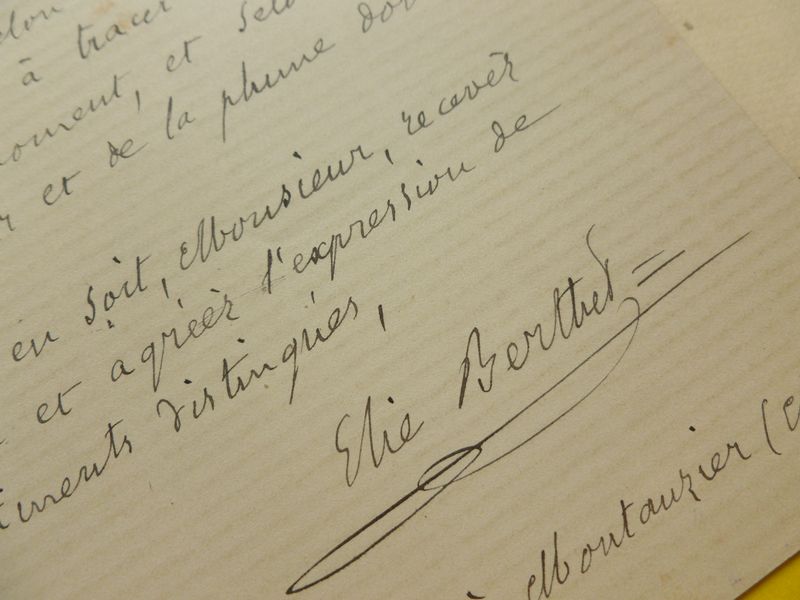 à tracer
moment, et selo
et de la plume do
en soit, Monsieur, recevez
et agréez l'expression de
timents distingués,
Elie Berthet
à Montauzier (C